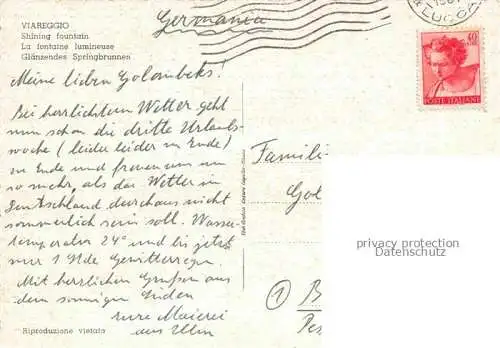 VIAREGGIO
Shining fountain
La fontaine lumineuse
Glänzendes Springbrunnen
Germania
LUCCA
40
POSTE ITALIANE
Meine lieben Golombeks!
Bei herrlichstem Wetter geht
nun schon die dritte Urlaubs-
woche (leider leider im Ende)
zu Ende und freuen uns um
so mehr, als das Wetter in
Deutschland durchaus nicht
sommerlich sein soll. Wasser-
temperatur 24° und bis jetzt
nur 1 Stde Gewitterregen.
Mit herzlichen Grüßen aus
dem sonnigen Süden
eure Maierei
aus Ulm
Famili
Gol
privacy protection
Datenschutz
1 B
Pes
Riproduzione vietata